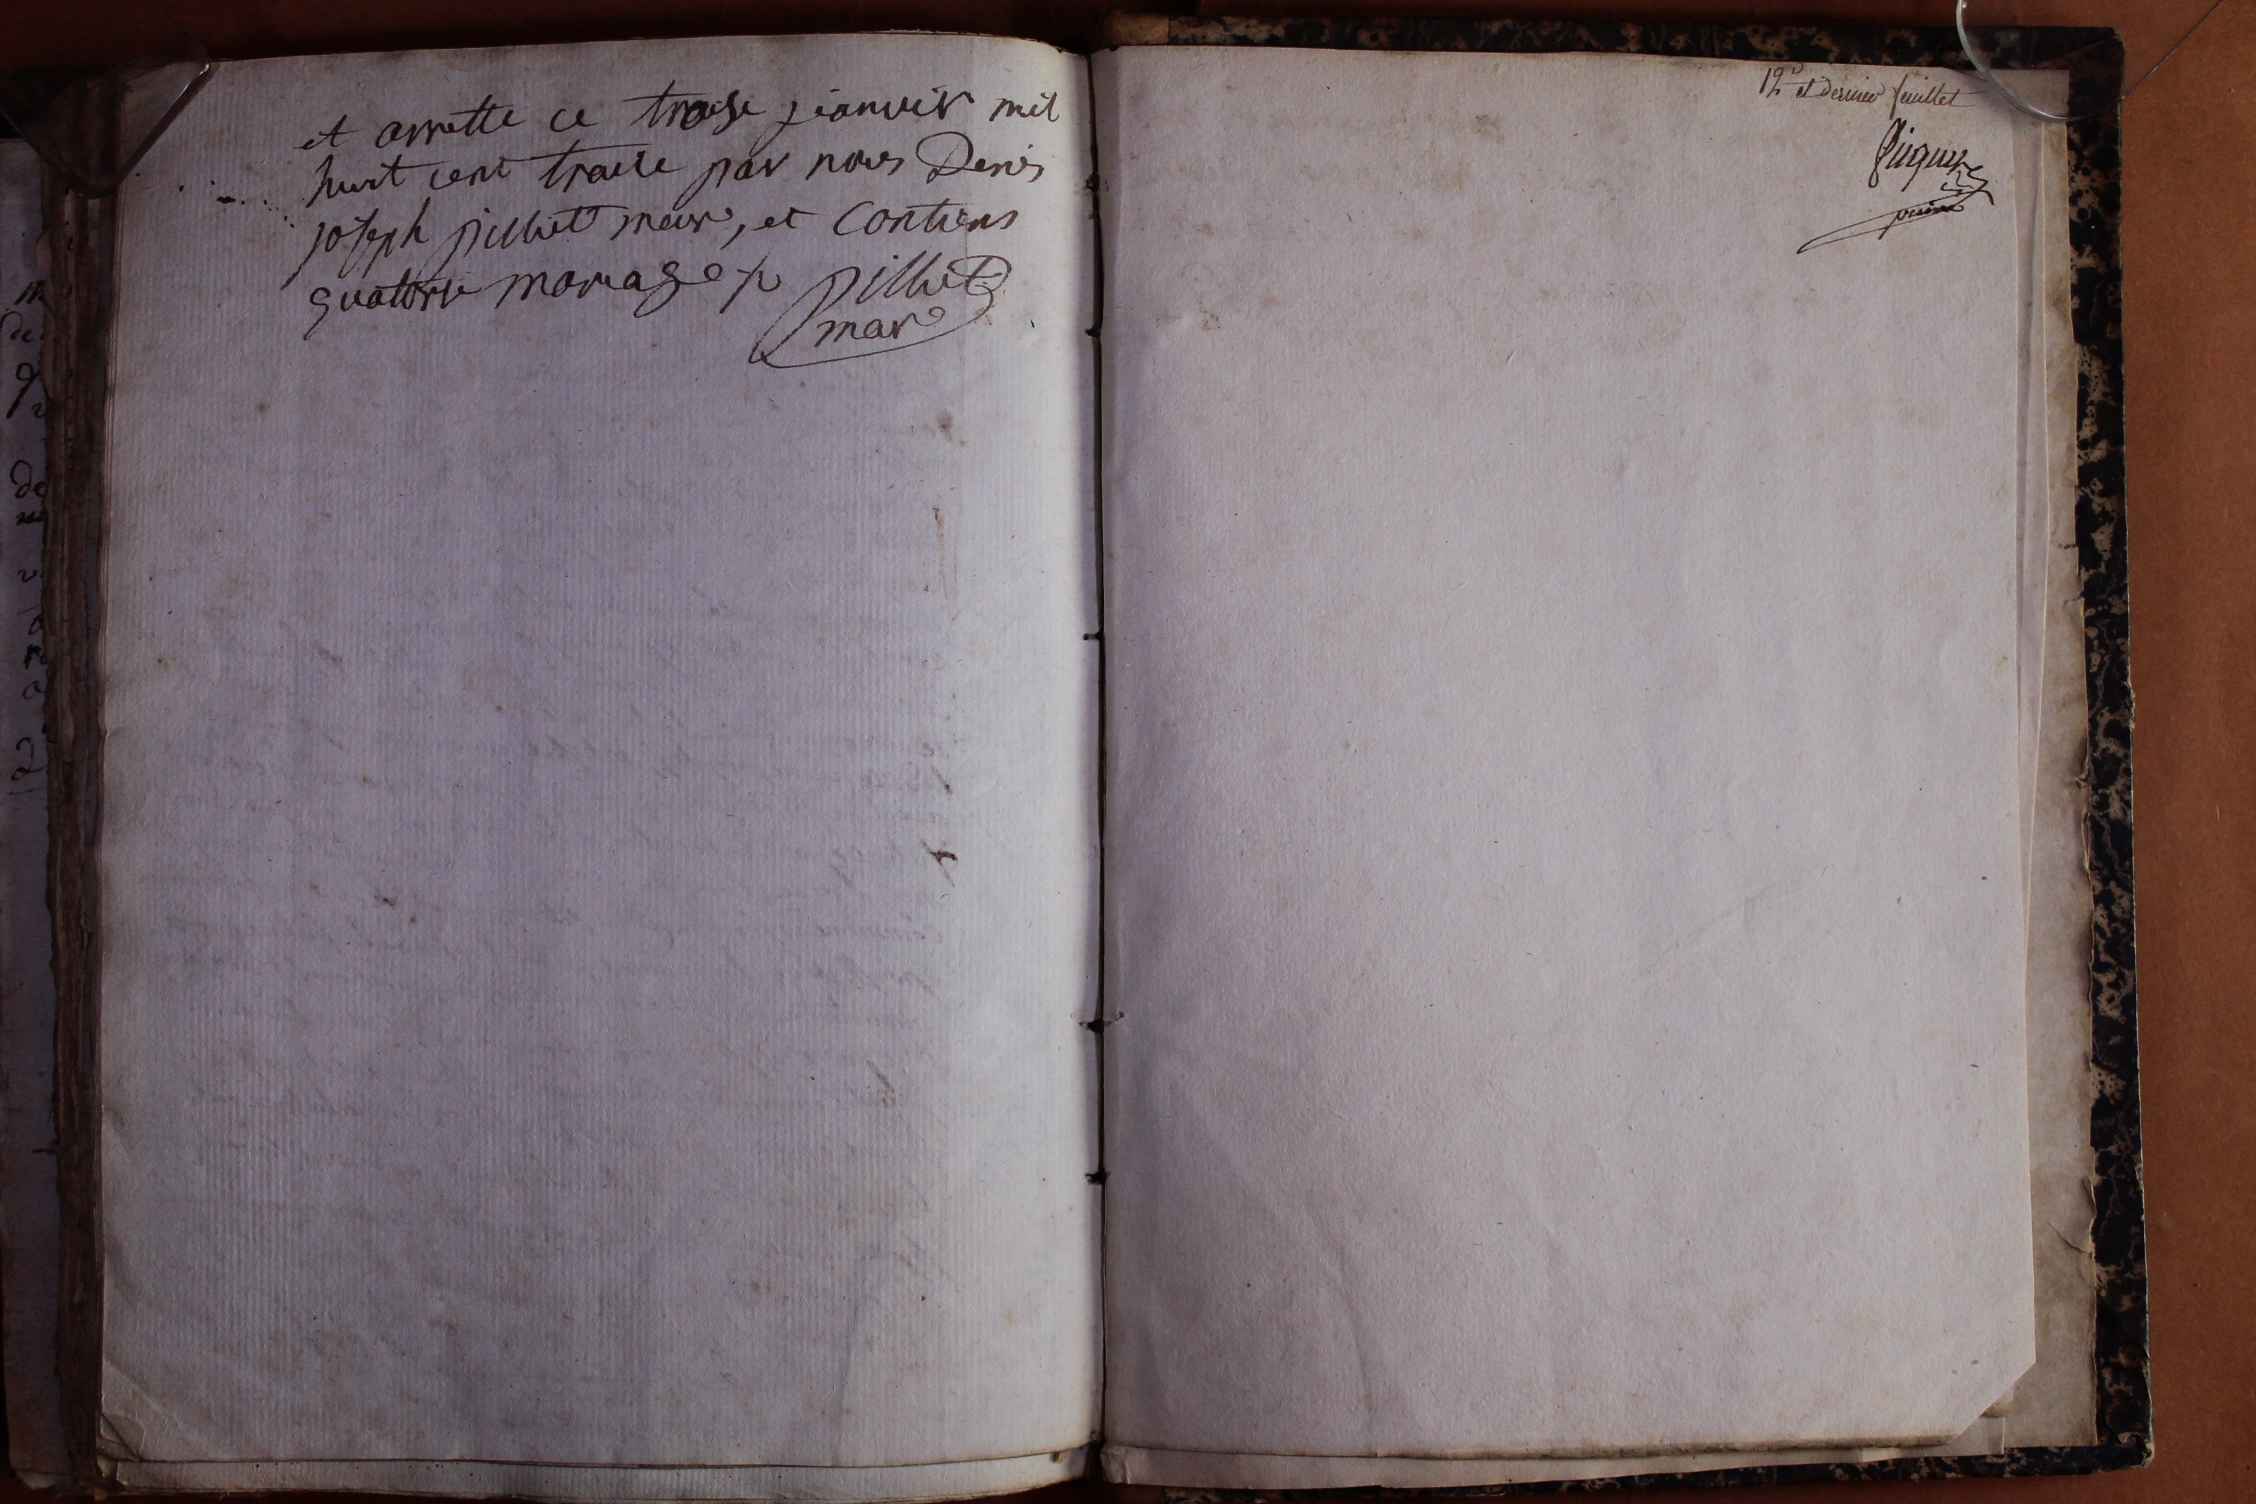 et arrette ce traise jeanvier mil
huit cent traise par nous Denis
joseph pilluet maire, et Contiens
quatorze mariage
pilluet
mare
12e et dernier feuillet